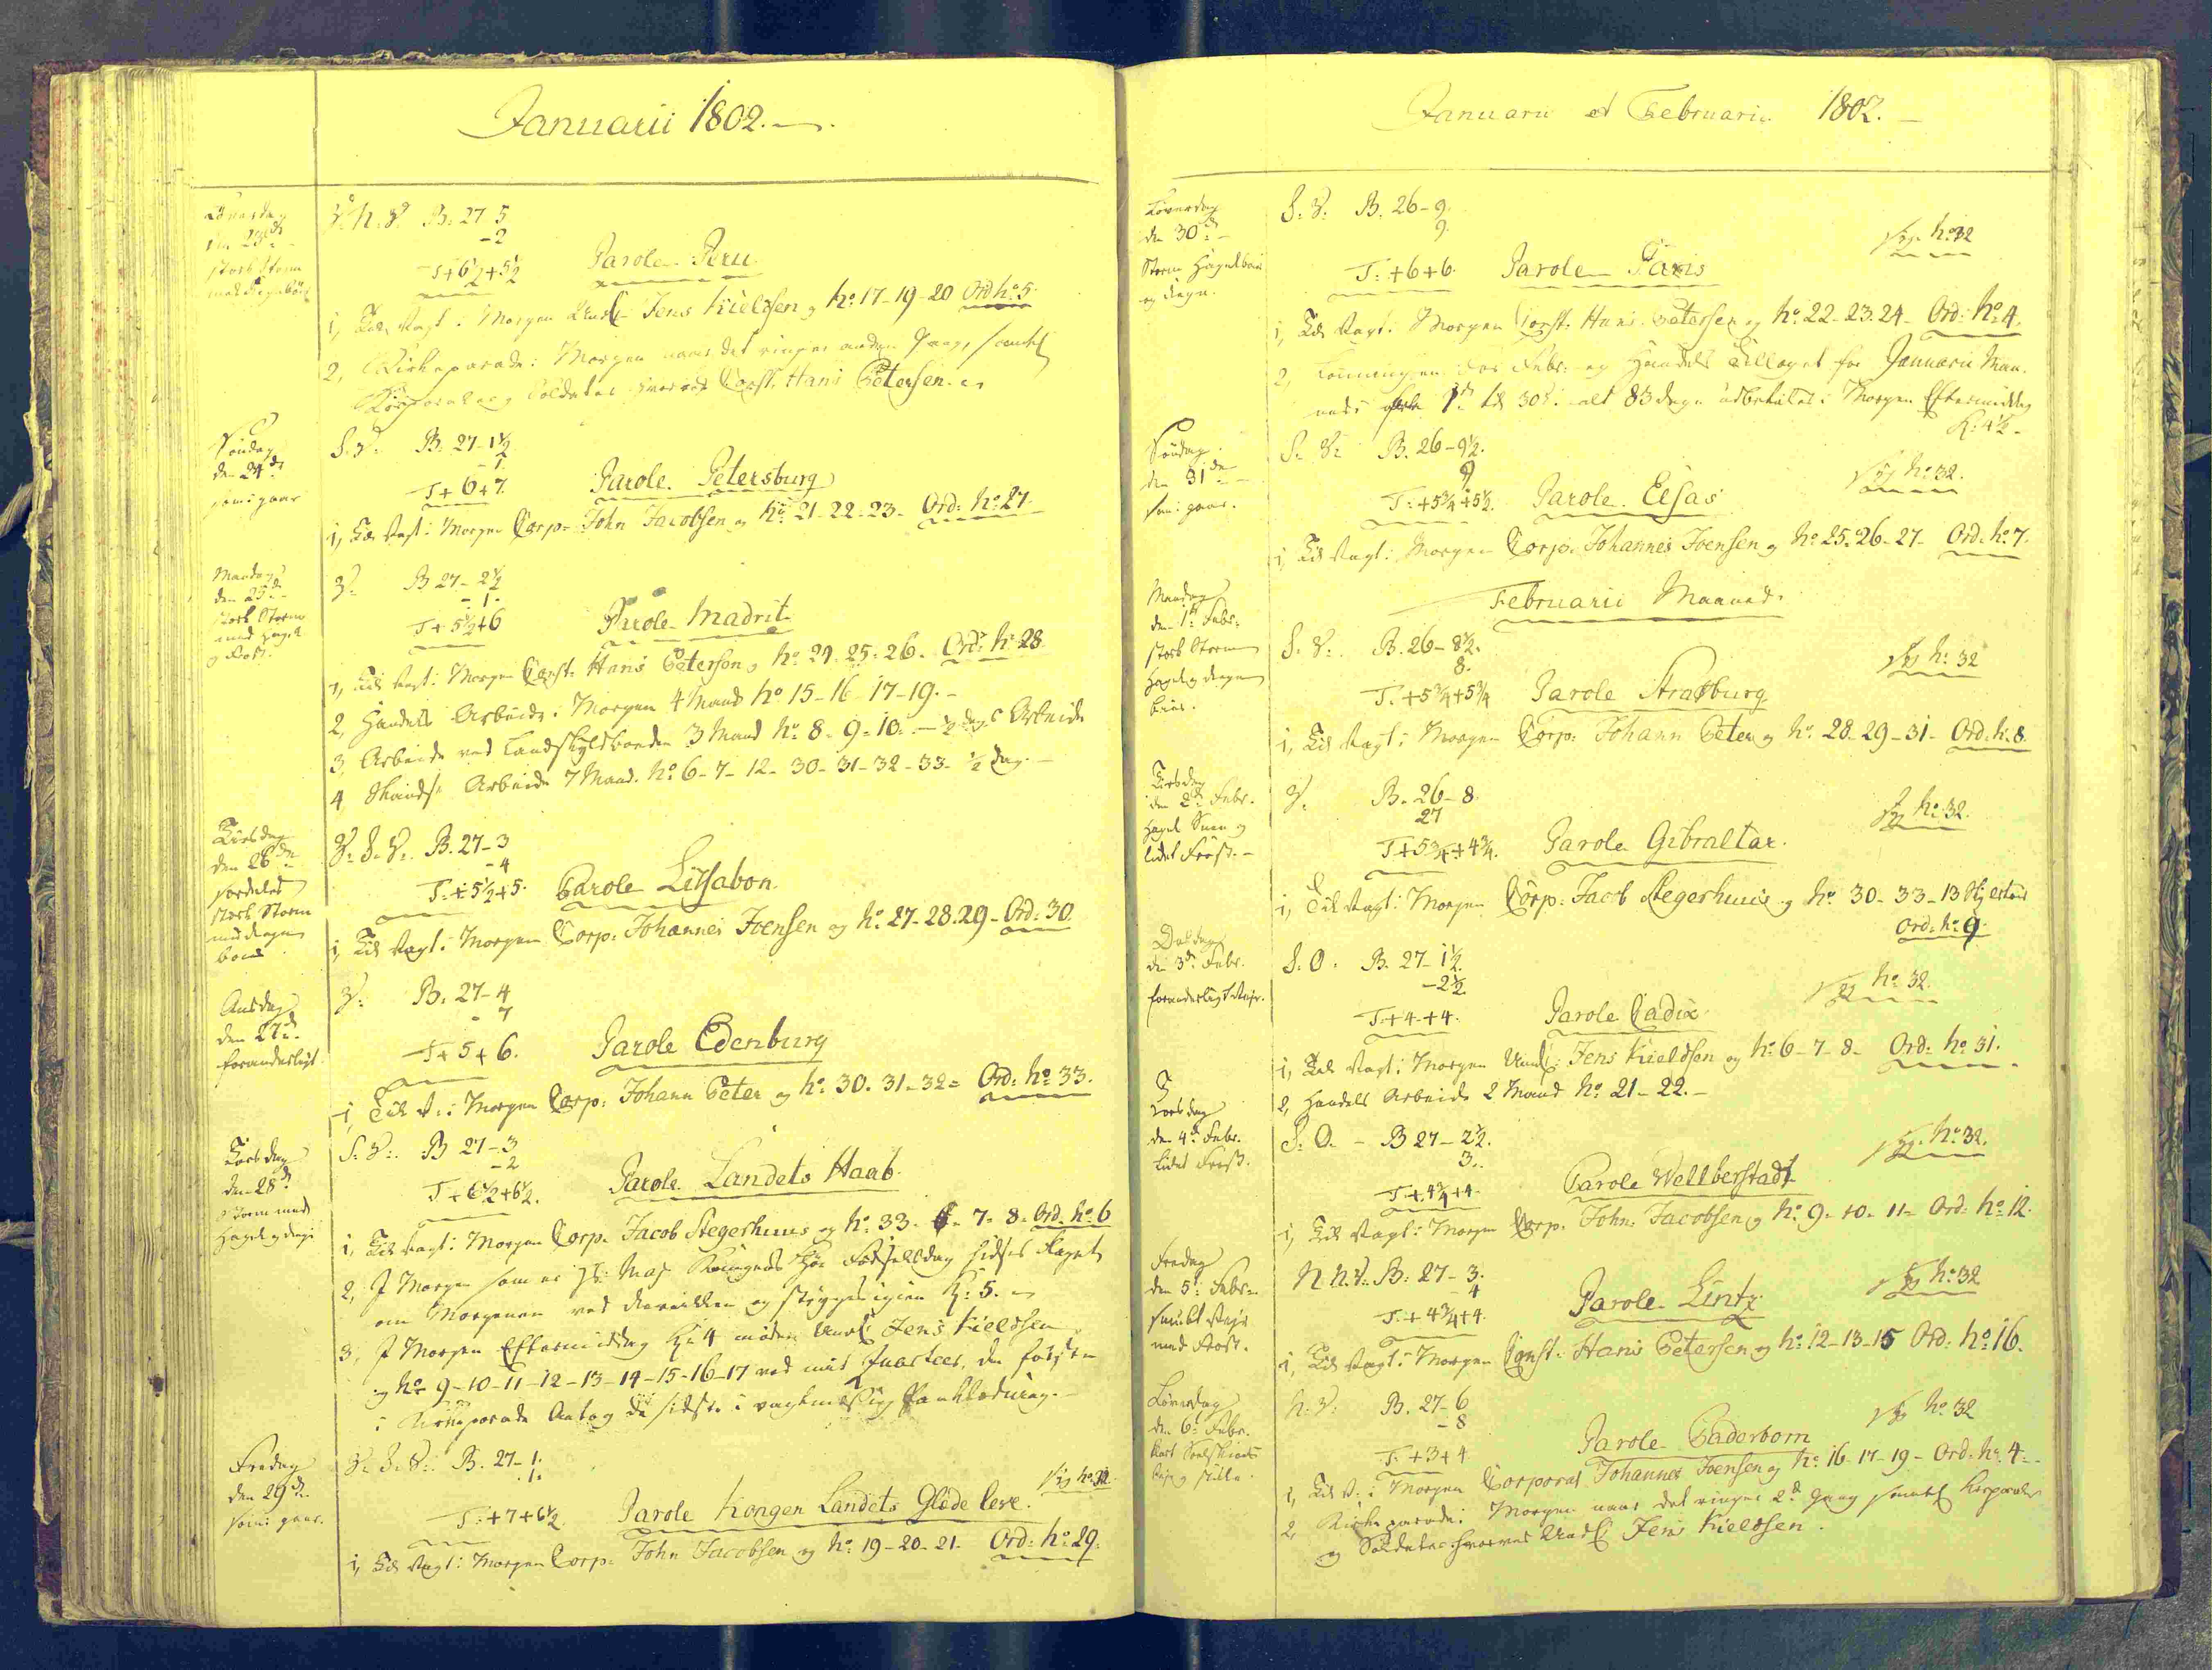 Januarii 1802.
Löverdag
den 23de
stærk Storm
med Regnbÿer
V. N. V. B. 27 5
- 2
T + 6½ + 5½
Parole Peru.
1, Til Vagt i Morgen Und. Jens Kieldsen og No. 17-19-20 Ord No. 5.
2, Kirkeparade i Morgen naar det ringer anden Gang, samtl.
Korporaler og Soldater hvorved Const. Hans Petersen.
Söndag
den 24de
som i gaar
S. V. B. 27-1½
- 1.
T + 6 + 7.
Parole Petersburg
1, Til Vagt i Morgen Corp. John Jacobsen og No. 21-22-23- Ord: No. 27.
Mandag
den 25de
stærk Storm
med Hagel
og Frost.
V. B 27-2½
- 1.
T + 5½ + 6
Parole Madrit
1, Til Vagt i Morgen Const. Hans Peterson og No. 24. 25. 26. Ord: No. 28.
2, Handels Arbeide i Morgen 4 Mand No. 15-16-17-19.-
3, Arbeide ved Landskyldboeden 3 Mand No. 8-9-10.- ½ dags Arbeide
4, Skandse Arbeide 7 Mand. No. 6-7-12-30-31-32-33- ½ dag.-
Tirsdag
den 26de
stærk Storm
med Regn
V. S. V. B. 27-3
- 4
T. + 5½ + 5.
Parole Lissabon.
1, Til Vagt i Morgen Corp. Johannes Joensen og No. 27-28.29- Ord: 30
Onsdag
den 27de
foranderligt.
V. B. 27-4
- 7
T + 5 + 6.
Parole Edenburg
1, Til V. i Morgen Corp. Johann Peter og No. 30. 31-32- Ord: No. 33.
Torsdag
den 28de
Storm med
Hagel og Regn
S. V. B 27-3
- 2
T + 6½ + 6½.
Parole Landets Haab.
1, Til Vagt i Morgen Corp. Jacob Stegerhuus og No. 33. 6. 7. 8. Ord. No. 6
2, I Morgen som er Hs. Maj Kongens Høie Födselsdag hidses Flaget
om Morgenen ved Reveillen og stryges igien Kl. 5.
3, I Morgen Eftermiddag Kl. 4 möder Und. Jens Kieldsen
og No. 9-10-11-12-13-14-15-16-17 ved mit Quarteer, de förste
i Kirkeparade Antog de sidste i vagtmæssig Paaklædning.-
Fredag
den 29de
som i gaar.
V. S. V. B. 27-1.
.1.
T. + 7 + 6½.
Syg No. 32.
Parole Kongen Landets Glæde leve.
1, Til Vagt i Morgen Corp. John Jacobsen og No. 19-20-21. Ord: No. 29.
Januarii et Februarii 1802.
Löverdag
den 30de
Storm Hagelbÿer
og Regn.
S. V. B. 26-9.
9.
Syg No. 32
T. + 6 + 6.
Parole Paris
1, Til Vagt i Morgen Const. Hans Petersen og No. 22-23.24- Ord: No. 4.
2, Lönningen for Febr. og Handels Tillæget for Januarii Maa-
neds 1te til 30te alt 83 dage udbetales i Morgen Eftermiddag
Kl. 4½.
Söndag
den 31de
som i gaar.
S. V. B. 26-9½.
9
Syg No. 32.
T. + 5¾ + 5½.
Parole Elsas
1, Til Vagt i Morgen Corp. Johannes Joensen og No. 25-26-27- Ord. No. 7.
Februarii Maaned.
Mandag
den 1te Febr.
stærk Storm
Hagel og Regn
bÿer.
S. V. B. 26-8½.
8.
Syg No. 32
T. + 5¾ + 5¾
Parole Strasburg
1, Til Vagt i Morgen Corp. Johann Peter og No. 28-29-31- Ord. No. 8
Tirsdag
den 2de Febr.
Hagel Snee og
lidet Frost.-
V. B. 26-8.
27
Syg No. 32.
T + 5¾ + 4¾.
Parole Gibraltar.
1, Til Vagt i Morgen Corp. Jacob Stegerhuus og No. 30-33-13
Ord. No. 9.
Onsdag
den 3de Febr.
foranderligt Veir.
S. O. B. 27-1½
-2½
Syg No. 32.
T. + 4 + 4.
Parole Cadix
1, Til Vagt i Morgen Und. Jens Kieldsen og No. 6-7-8- Ord: No. 31.
2, Handels Arbeide 2 Mand No. 21-22.-
Torsdag
den 4de Febr.
Lidet Frost.
S. O. - B 27-2½.
3.
Syg. No. 32.
T. + 4¾ + 4.
Parole Wellberstadt
1, Til Vagt i Morgen Corp. John Jacobsen og No. 9-10-11- Ord: No. 12.
Fredag
den 5te Febr.
smukt Veir
med Frost.
N. N. V. B: 27-3.
4
Syg No. 32
T. + 4¾ + 4.
Parole Lintz
1, Til Vagt i Morgen Const. Hans Petersen og No. 12-13-15 Ord: No. 16.
Löverdag
den 6te Febr.
klart Soelskins
Veir og stille
N. V. B. 27-6
- 8
Syg No. 32
T. + 3 + 4
Parole Paderborn
1, Til V. i Morgen Corporal Johannes Joensen og No. 16-17-19- Ord. No. 4.-
2, Kirke parade i Morgen naar det ringer 2de Gang samtl. Korporaler
og Soldater hvorved Und. Jens Kieldsen.